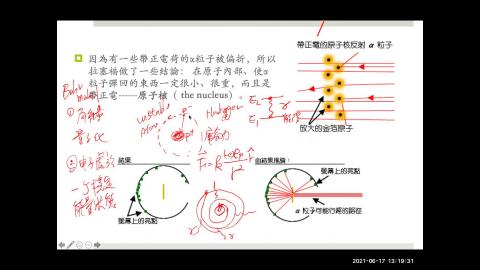 因為有一些帶正電荷的α粒子被偏折，所以
拉塞福做了一些結論： 在原子內部、使α
粒子彈回的東西一定很小、很重，而且是
帶正電------原子核（the nucleus）。
帶正電的原子核反射 α 粒子
放大的金箔原子
Bohr
model
①
量子化
unstable
atom
Hydrogen
E₂
E₁
②電子處於
一穩定
能量狀態
結果
螢幕上的亮點
由結果推論：
螢幕上的亮點
α 粒子可能行經的路徑
2021-06-17 13:19:31